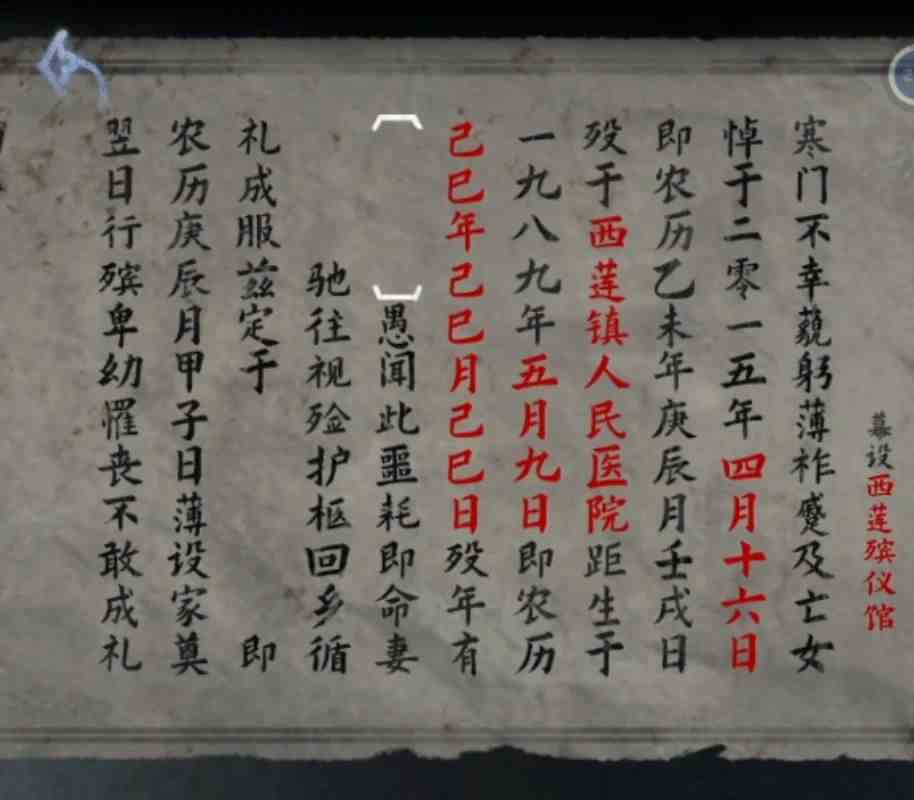 幕设西莲殡仪馆
寒门不幸藐躬薄祚蹙及亡女
悼于二零一五年四月十六日
即农历乙未年庚辰月壬戌日
殁于西莲镇人民医院距生于
一九八九年五月九日即农历
己巳年己巳月己巳日殁年有
愚闻此噩耗即命妻
驰往视殓护柩回乡循
礼成服兹定于 即
农历庚辰月甲子日薄设家奠
翌日行殡卑幼惧丧不敢成礼